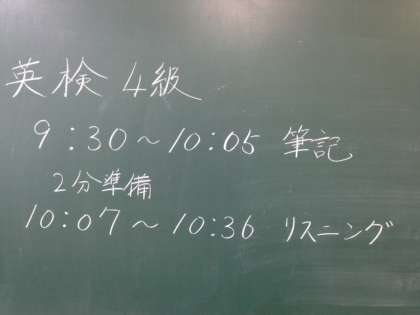 英検 4級
9:30～10:05 筆記
2分準備
10:07～10:36 リスニング